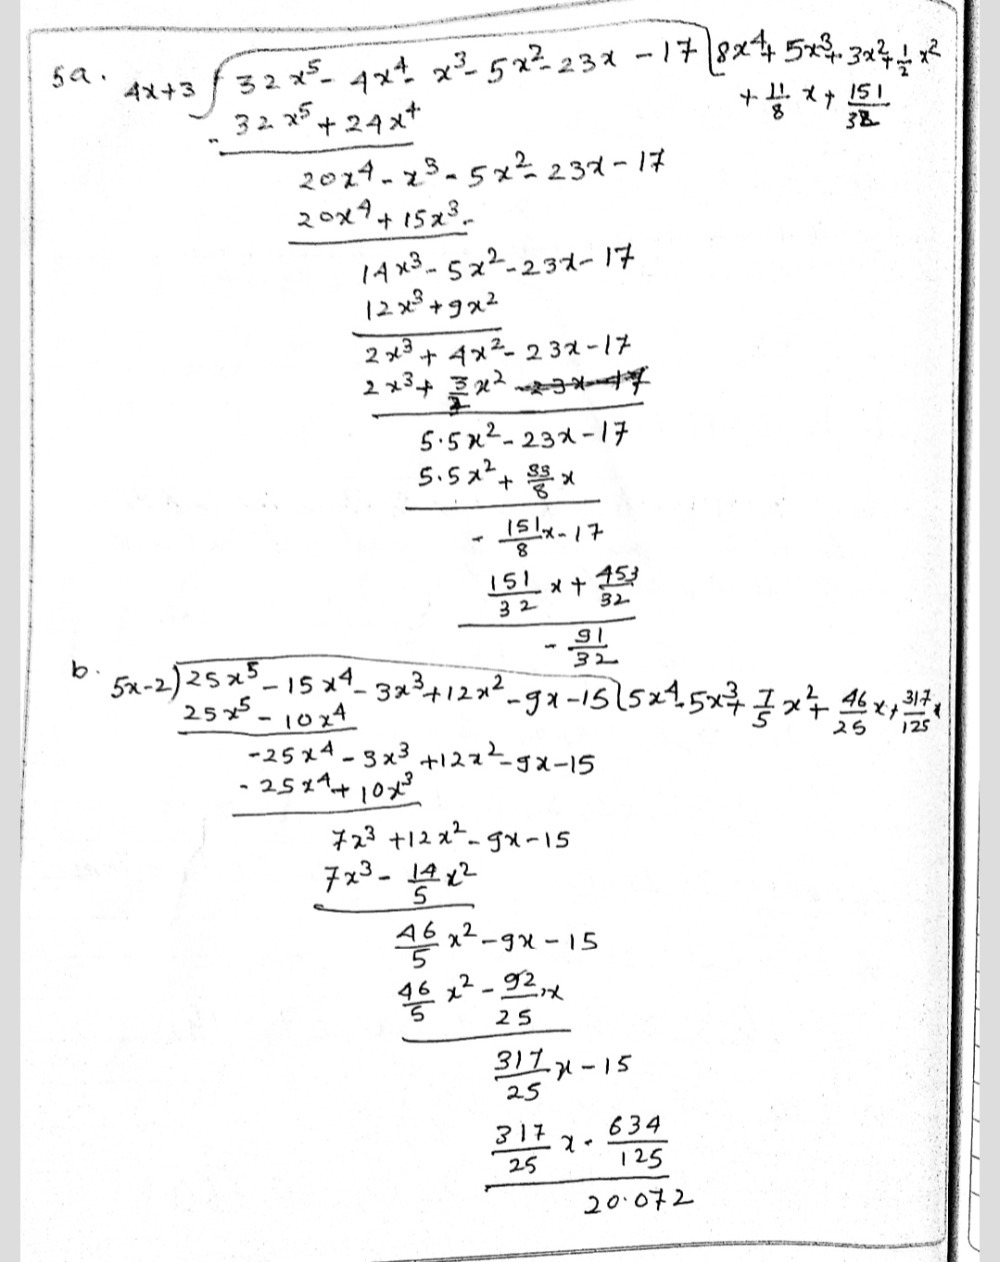 5a. 4x+3 ) 32x⁵ - 4x⁴ - x³ - 5x² - 23x - 17 ( 8x⁴ + 5x³ + 3x² + 1/2 x²
+ 11/8 x + 151/32
- 32x⁵ + 24x⁴
20x⁴ - x³ - 5x² - 23x - 17
20x⁴ + 15x³
14x³ - 5x² - 23x - 17
12x³ + 9x²
2x³ + 4x² - 23x - 17
2x³ + 3/2 x² - 23x - 17
5.5x² - 23x - 17
5.5x² + 33/8 x
- 151/8 x - 17
151/32 x + 453/32
- 91/32
b. 5x-2 ) 25x⁵ - 15x⁴ - 3x³ + 12x² - 9x - 15 ( 5x⁴ - 5x³ + 7/5 x² + 46/25 x + 317/125
25x⁵ - 10x⁴
-25x⁴ - 3x³ + 12x² - 9x - 15
-25x⁴ + 10x³
7x³ + 12x² - 9x - 15
7x³ - 14/5 x²
46/5 x² - 9x - 15
46/5 x² - 92/25 x
317/25 x - 15
317/25 x - 634/125
20.072